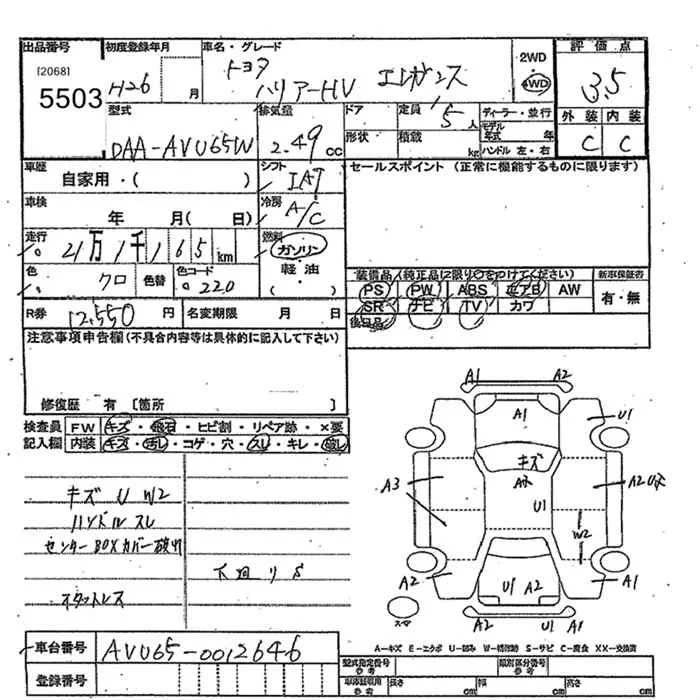 出品番号 初度登録年月 車名・グレード 2WD 評価点
[2068] トヨタ
5503 H26 月 ハリアーHV エレガンス 4WD 3.5
型式 排気量 ドア 定員 5人 ディーラー・並行 外装 内装
DAA-AVU65W 2.49 cc 形状 積載 kg モデル年式 年 C C
ハンドル 左・右
車歴 シフト セールスポイント (正常に機能するものに限ります)
自家用・( ) IAT
車検 冷房
年 月( 日) A/C
走行 燃料
21万1千165km ガソリン
色 色替 色コード 軽油 装備品(純正品に限り○をつけてください) 新車保証書
クロ 220 ・( ) PS PW ABS エアB AW 有・無
R券 12,550円 名変期限 月 日 SR ナビ TV カワ
後日品
注意事項申告欄(不具合内容等は具体的に記入して下さい)
修復歴 有 [箇所 ]
検査員 FW キズ・飛石・ヒビ割・リペア跡・×要
記入欄 内装 キズ・汚れ・コゲ・穴・スレ・キレ・破レ
キズ U W2
ハンドルスレ
センターBOXカバー破れ
下回りS
スタットレス
A1 A2
A1 U1
キズ
A3 U1 A2
W2
A2 U1 A2 A1
スペア
A2 U1 A1
A-キズ E-エクボ U-凹み W-補修跡 S-サビ C-腐食 XX-交換済
車台番号 AVU65-0012646
登録番号
型式指定番号 参考 類別区分番号 参考
車庫証明用 参考 長さ cm 幅 cm 高さ cm